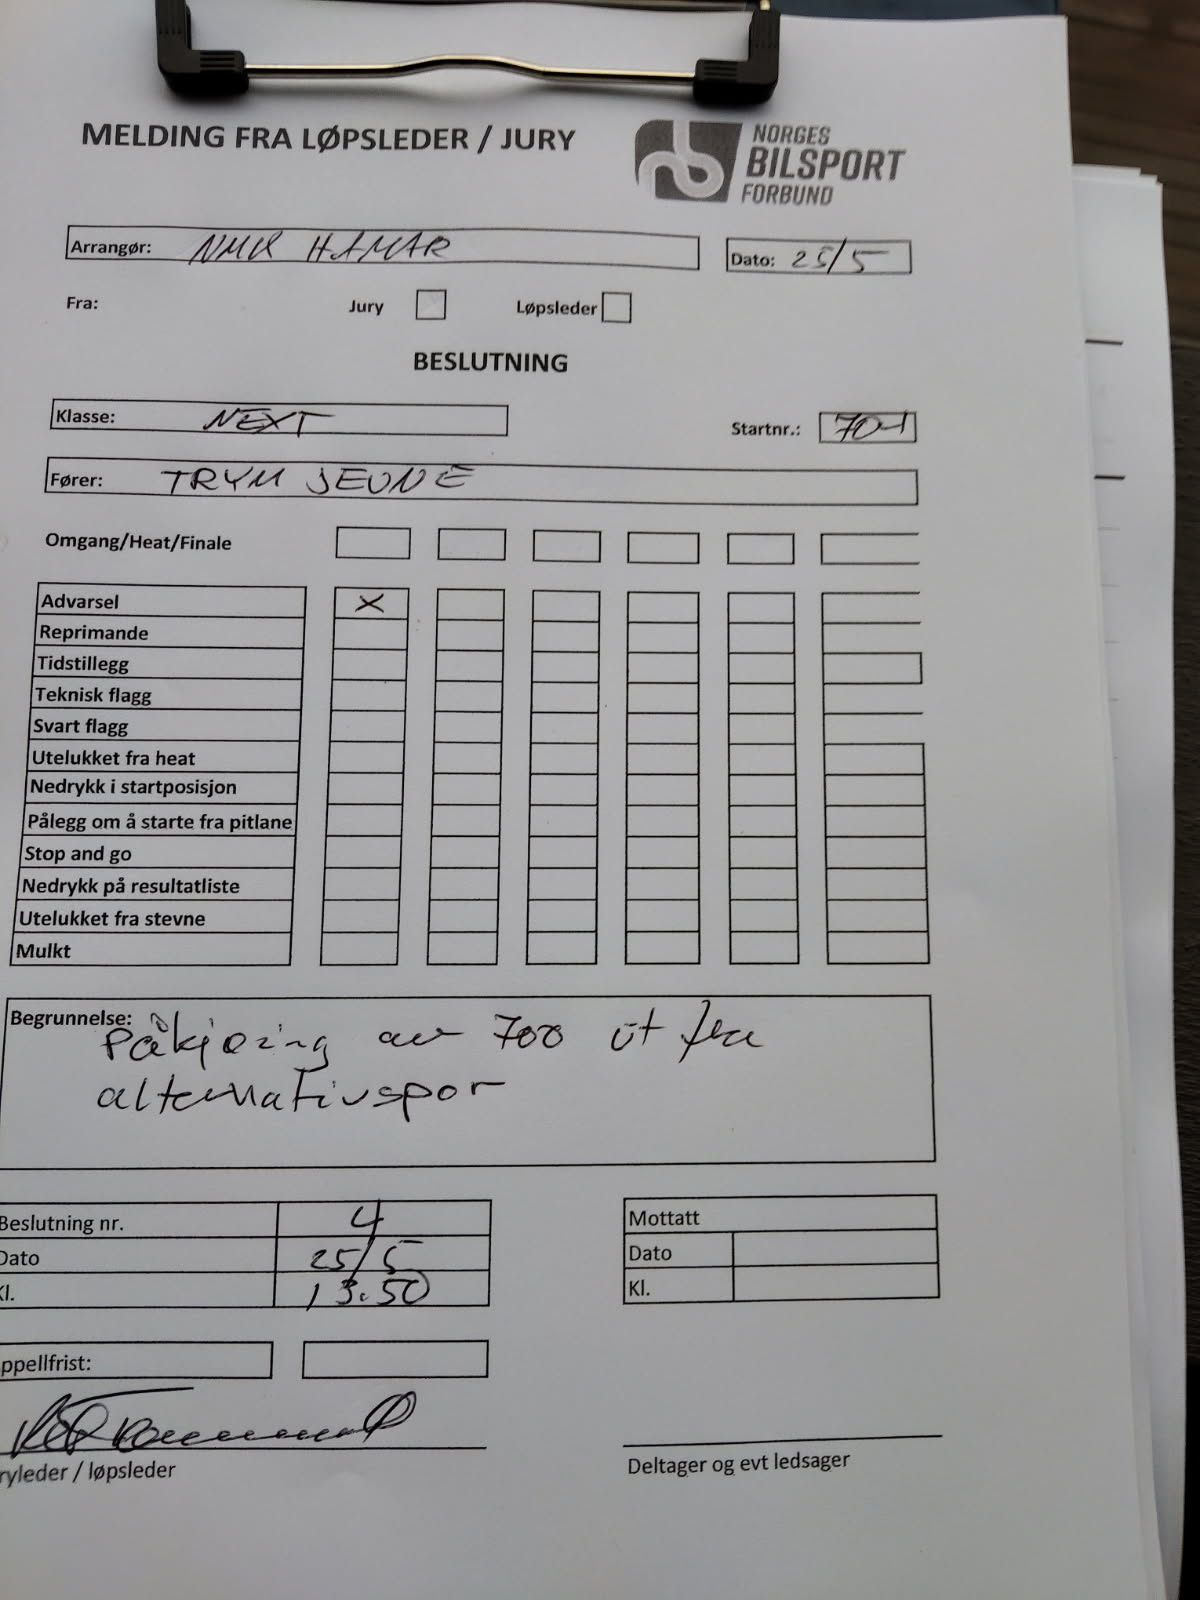 MELDING FRA LØPSLEDER / JURY
NORGES
BILSPORT
FORBUND
Arrangør: NMK HAMAR
Dato: 25/5
Fra: Jury Løpsleder
BESLUTNING
Klasse: NEXT
Startnr.: 701
Fører: TRYM JEVNE
Omgang/Heat/Finale
Advarsel X
Reprimande
Tidstillegg
Teknisk flagg
Svart flagg
Utelukket fra heat
Nedrykk i startposisjon
Pålegg om å starte fra pitlane
Stop and go
Nedrykk på resultatliste
Utelukket fra stevne
Mulkt
Begrunnelse: Påkjøring av 700 ut fra
alternativspor
Beslutning nr. 4
Dato 25/5
Kl. 13.50
Mottatt
Dato
Kl.
ppellfrist:
ryleder / løpsleder
Deltager og evt ledsager